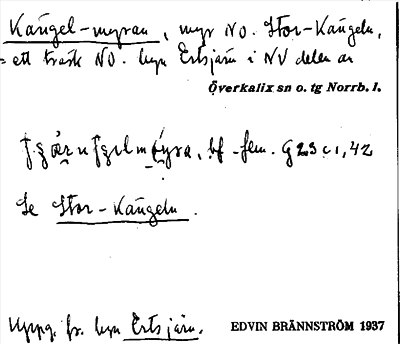 Kängel-myran, myr NO. Stor-Kängeln,
= ett träsk NO. byn Ertsjärv i NV delen av
Överkalix sn o. tg Norrb. l.
bf. fem. G 23 c 1, 42
Se Stor-Kängeln.
Uppg. fr. byn Ertsjärv.
EDVIN BRÄNNSTRÖM 1937